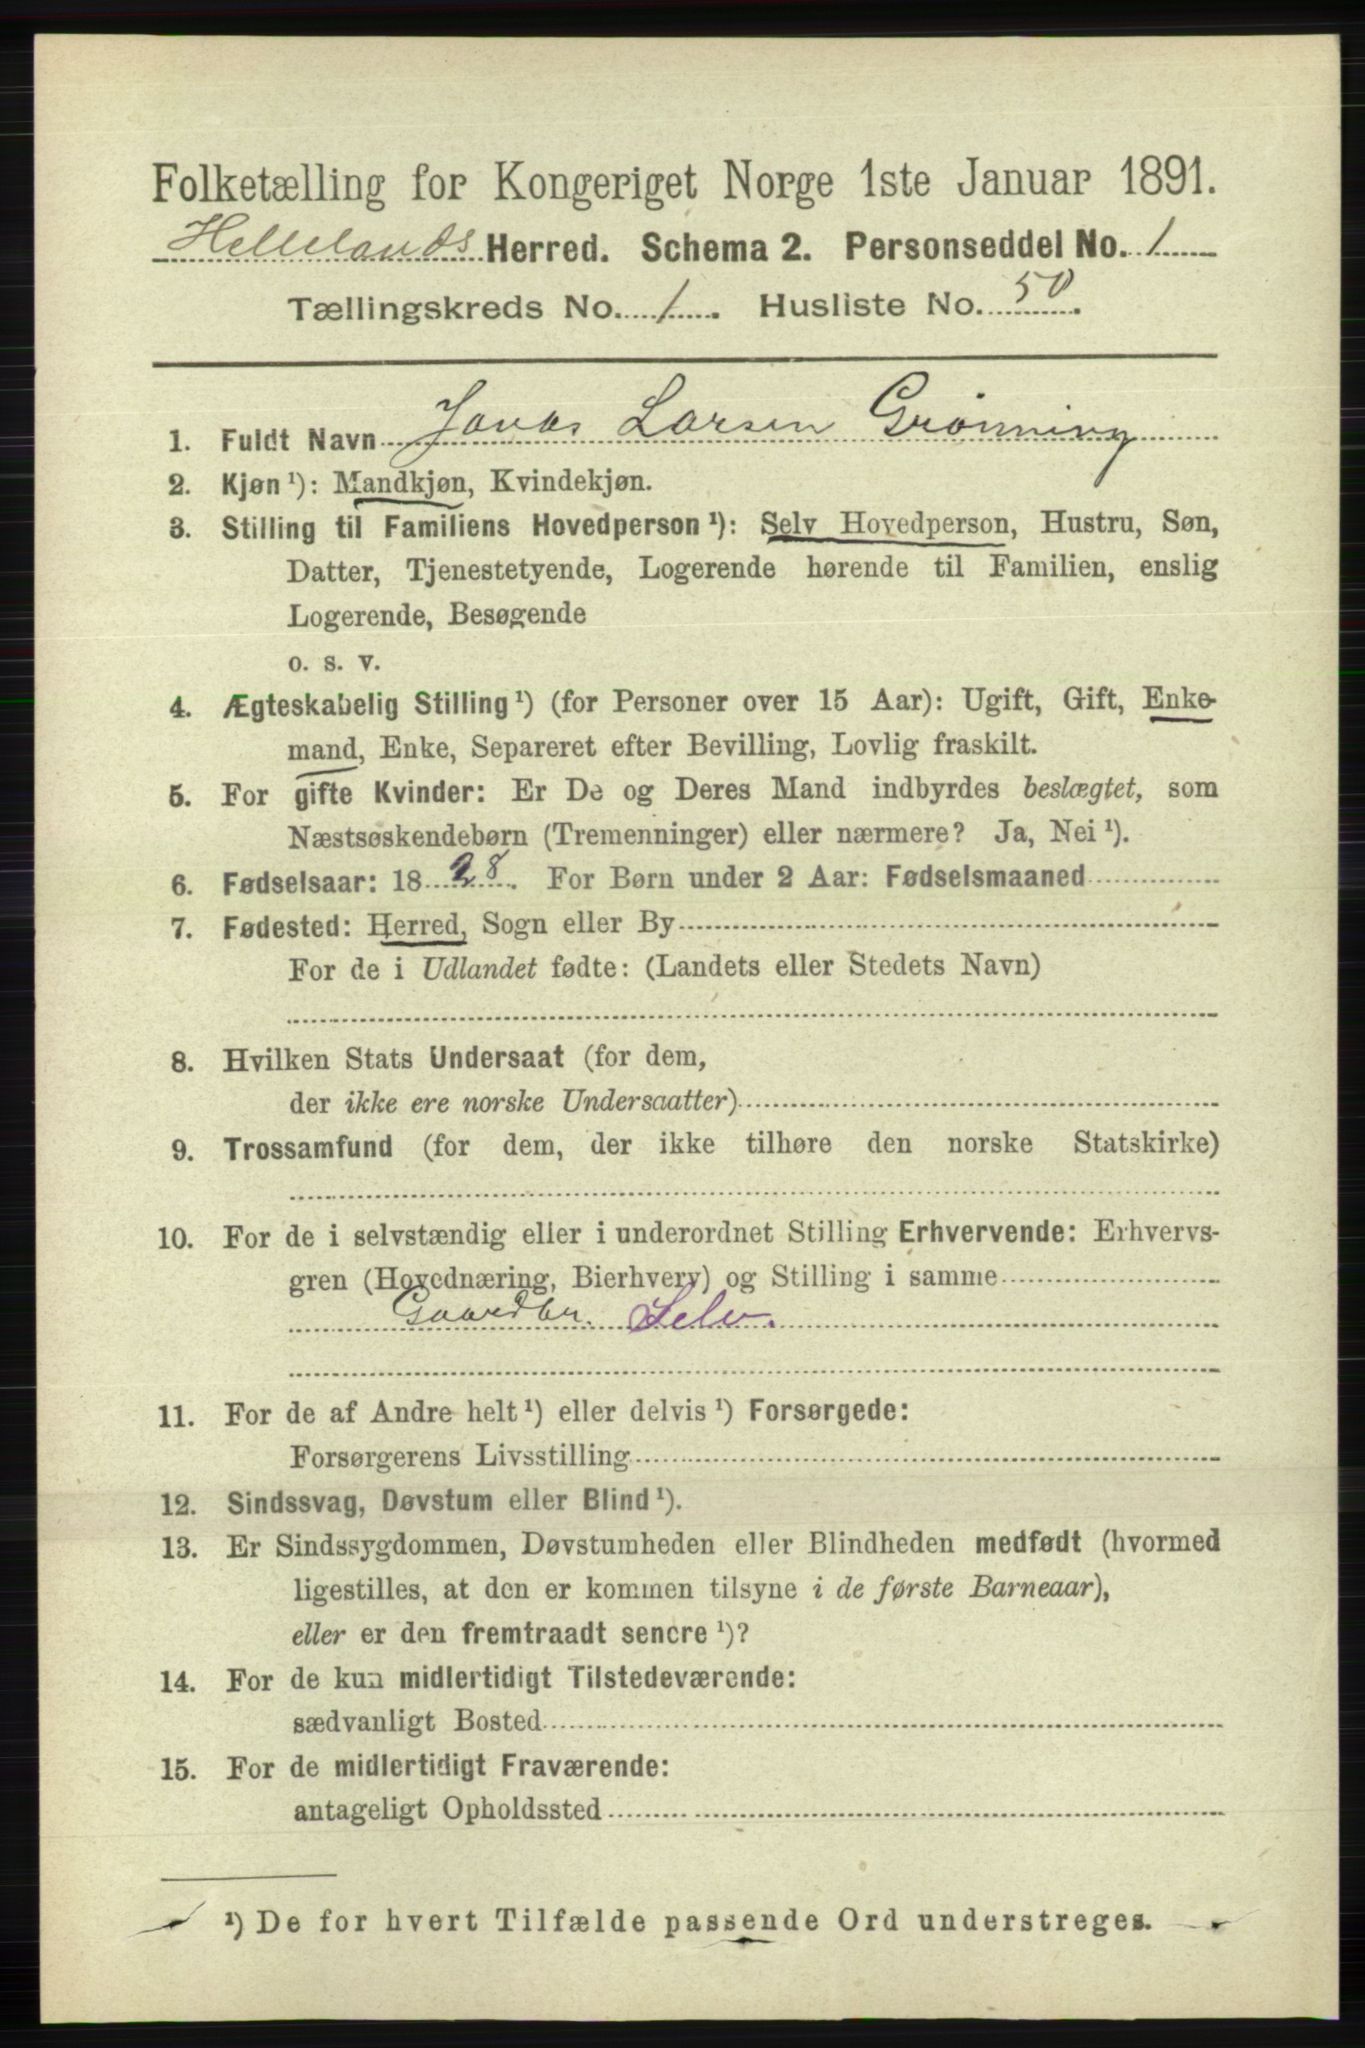 Folketælling for Kongeriget Norge 1ste Januar 1891.
Hellelands Herred. Schema 2. Personseddel No. 1
Tællingskreds No. 1. Husliste No. 50.
1. Fuldt Navn Jonas Larsen Grønning
2. Kjøn ¹): Mandkjøn, Kvindekjøn.
3. Stilling til Familiens Hovedperson ¹): Selv Hovedperson, Hustru, Søn,
Datter, Tjenestetyende, Logerende hørende til Familien, enslig
Logerende, Besøgende
o. s. v.
4. Ægteskabelig Stilling ¹) (for Personer over 15 Aar): Ugift, Gift, Enke-
mand, Enke, Separeret efter Bevilling, Lovlig fraskilt.
5. For gifte Kvinder: Er De og Deres Mand indbyrdes beslægtet, som
Næstsøskendebørn (Tremenninger) eller nærmere? Ja, Nei ¹).
6. Fødselsaar: 1828. For Børn under 2 Aar: Fødselsmaaned
7. Fødested: Herred, Sogn eller By
For de i Udlandet fødte: (Landets eller Stedets Navn)
8. Hvilken Stats Undersaat (for dem,
der ikke ere norske Undersaatter)
9. Trossamfund (for dem, der ikke tilhøre den norske Statskirke)
10. For de i selvstændig eller i underordnet Stilling Erhvervende: Erhvervs-
gren (Hovednæring, Bierhverv) og Stilling i samme
Gaardbr. Selv.
11. For de af Andre helt ¹) eller delvis ¹) Forsørgede:
Forsørgerens Livsstilling
12. Sindssvag, Døvstum eller Blind ¹).
13. Er Sindssygdommen, Døvstumheden eller Blindheden medfødt (hvormed
ligestilles, at den er kommen tilsyne i de første Barneaar),
eller er den fremtraadt senere ¹)?
14. For de kun midlertidigt Tilstedeværende:
sædvanligt Bosted
15. For de midlertidigt Fraværende:
antageligt Opholdssted
¹) De for hvert Tilfælde passende Ord understreges.